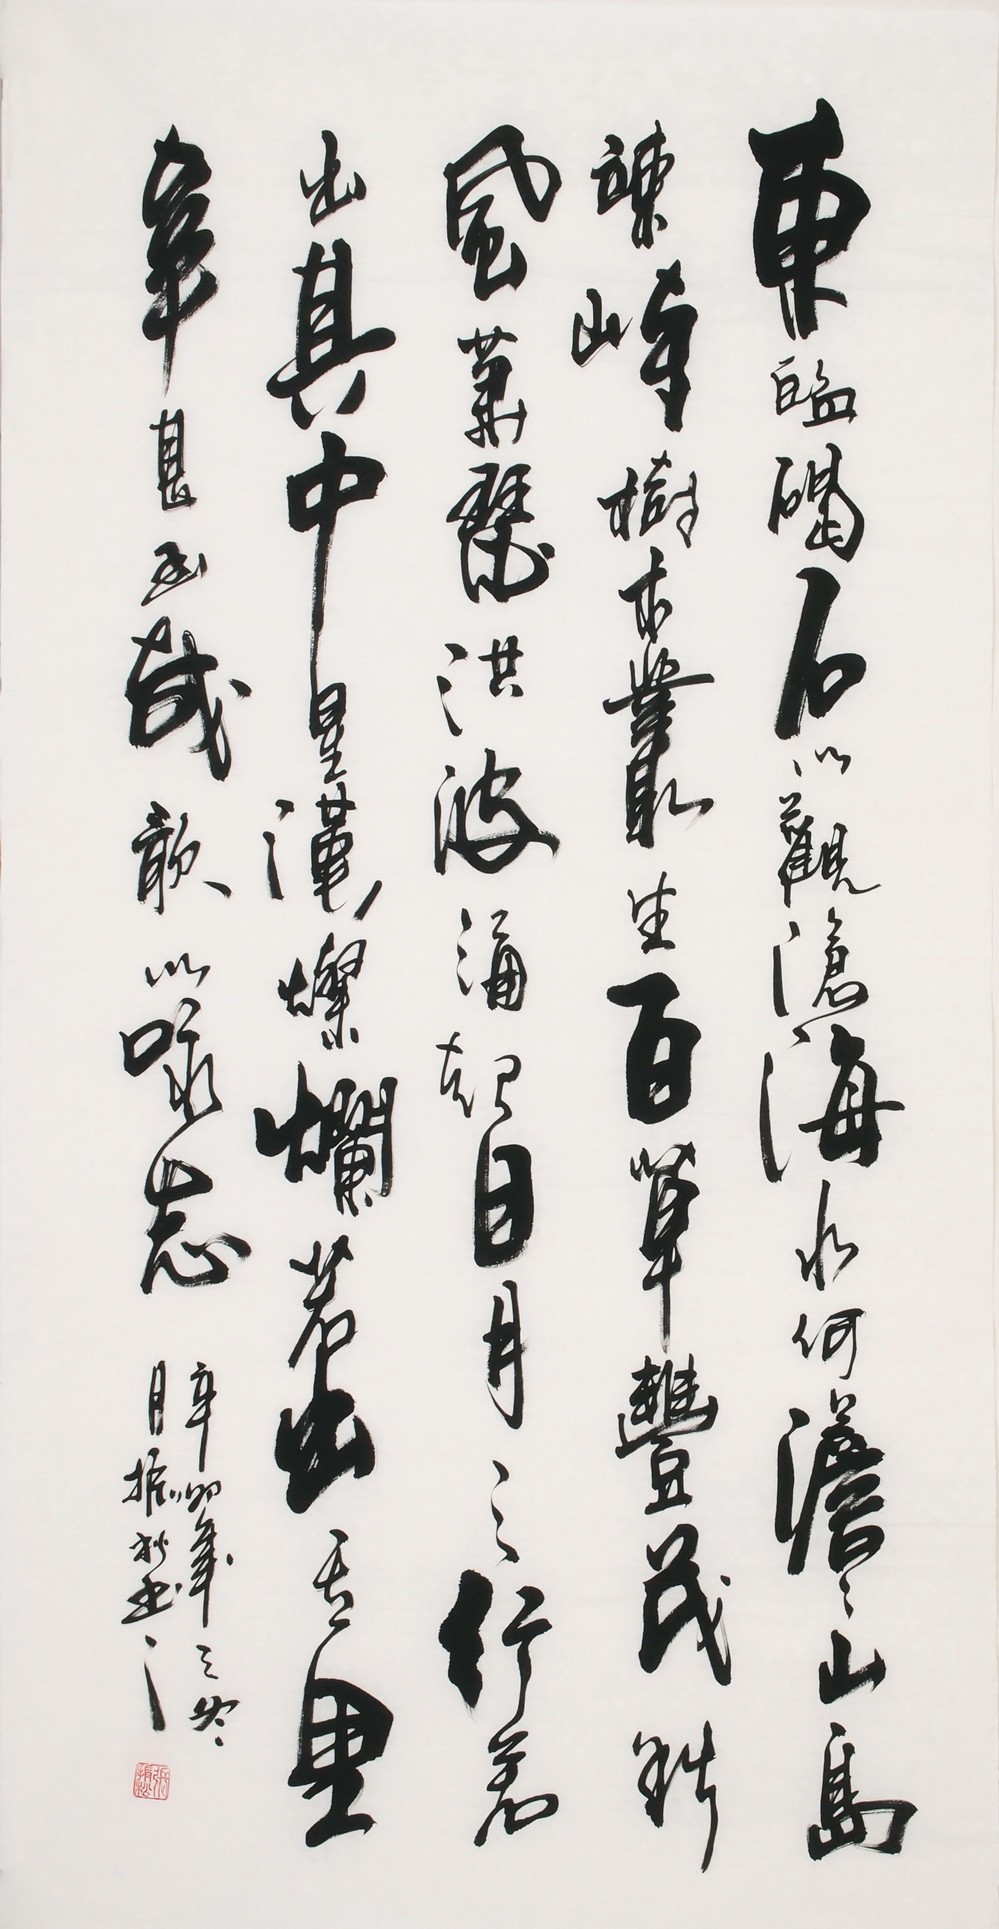 東臨碣石以觀滄海水何澹〻山島
竦峙樹木叢生百草豐茂秋
風蕭瑟洪波涌起日月之行若
出其中星漢燦爛若出其里
幸甚至哉歌以詠志
辛卯歲之冬
月振秋書